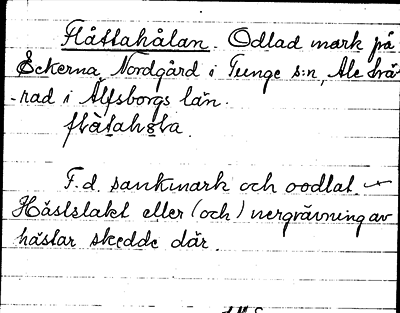 Flåttahålan. Odlad mark på
Eckerna, Nordgård i Tunge s:n, Ale hä-
-rad i Älfsborgs län.
flåtahola.
F.d. sankmark och oodlat.
Hästslakt eller (och) nergrävning av
hästar skedde där.